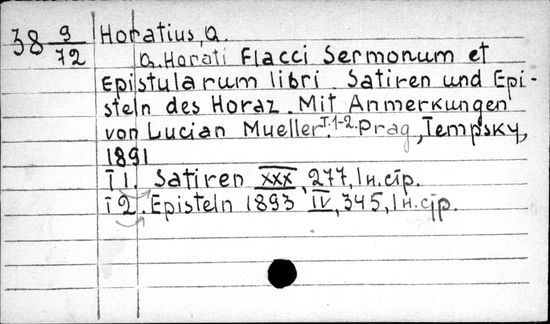 38 9/72 Horatius, Q.
Q. Horati Flacci Sermonum et
Epistularum libri. Satiren und Epi-
steln des Horaz. Mit Anmerkungen
von Lucian Mueller. T. 1-2. Prag, Tempsky,
1891
T 1. Satiren XXX, 277, 1 н. стр.
T 2. Episteln 1893 IV, 345, 1 н. стр.